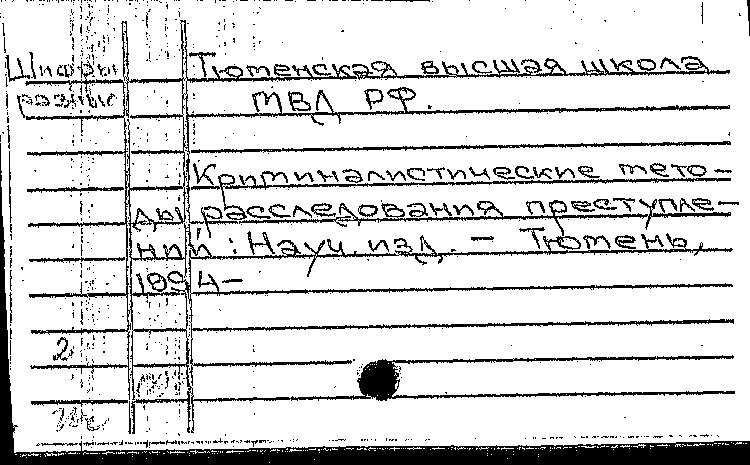 Цифры Тюменская высшая школа
разные МВД РФ.
Криминалистические мето-
ды расследования преступле-
ний : Науч. изд. – Тюмень,
1994–
2